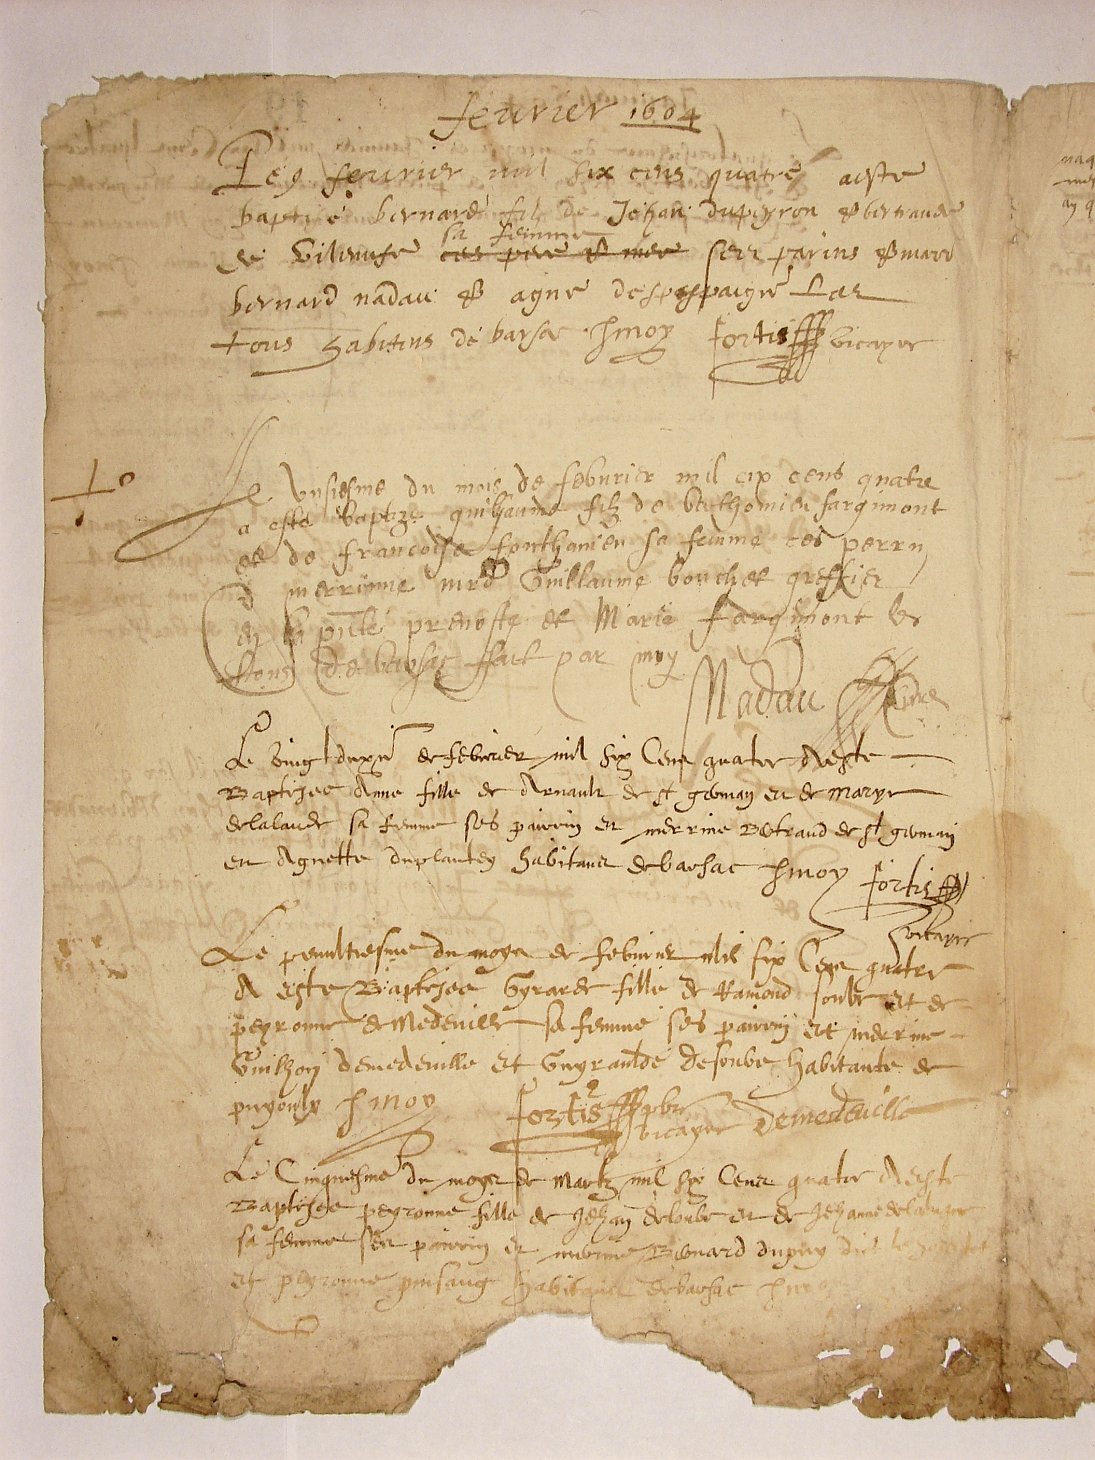 feurier 1604
Le 9 feurier mil six cens quatre aeste
baptize bernard filz de Jehan dupeyron & bertrande
de Vilenufe sa femme ses parins & mare
bernard nadau & agne
tous habitans de barsac p moy fortis vicayre
Le Vnsiesme du mois de feburier mil cix cens quatre
a esté baptize guilhaume filz de berthomieu fargimont
et de francoise fonthanieu sa femme ces perrin
merrinne Guillaume bouchet greffier
en la pnte preuoste et Marie fargimont
tous de barsac fait par moy
Nadau
Le Vingt du feburier mil six Cens quatre Aeste
Baptisee Anne fille de Arnault de st germain et de marye
delalande sa femme ses pairin et merrine Bertrand de st germain
et Agnette duplantey habitans de barsac p moy fortis
vicayre
Le penultiesme du moys de feburier mil six Cens quatre
A este Baptisee Gyrarde fille de Ramond soube et de
peyronne de Medeville sa femme ses pairin et merrine
Guilhem demedeuille et Guyraulde desoube habitants de
puyoulx p moy fortis pbre vicayre Demedeuille
Le Cinquiesme du moys de Martz mil six Cens quatre Aeste
Baptisee peyronne fille de Jehan deloube et de Jehanne
sa femme ses pairin et merrine Bernard dupuy dict
et peyronne pinsang habitans de barsac p moy